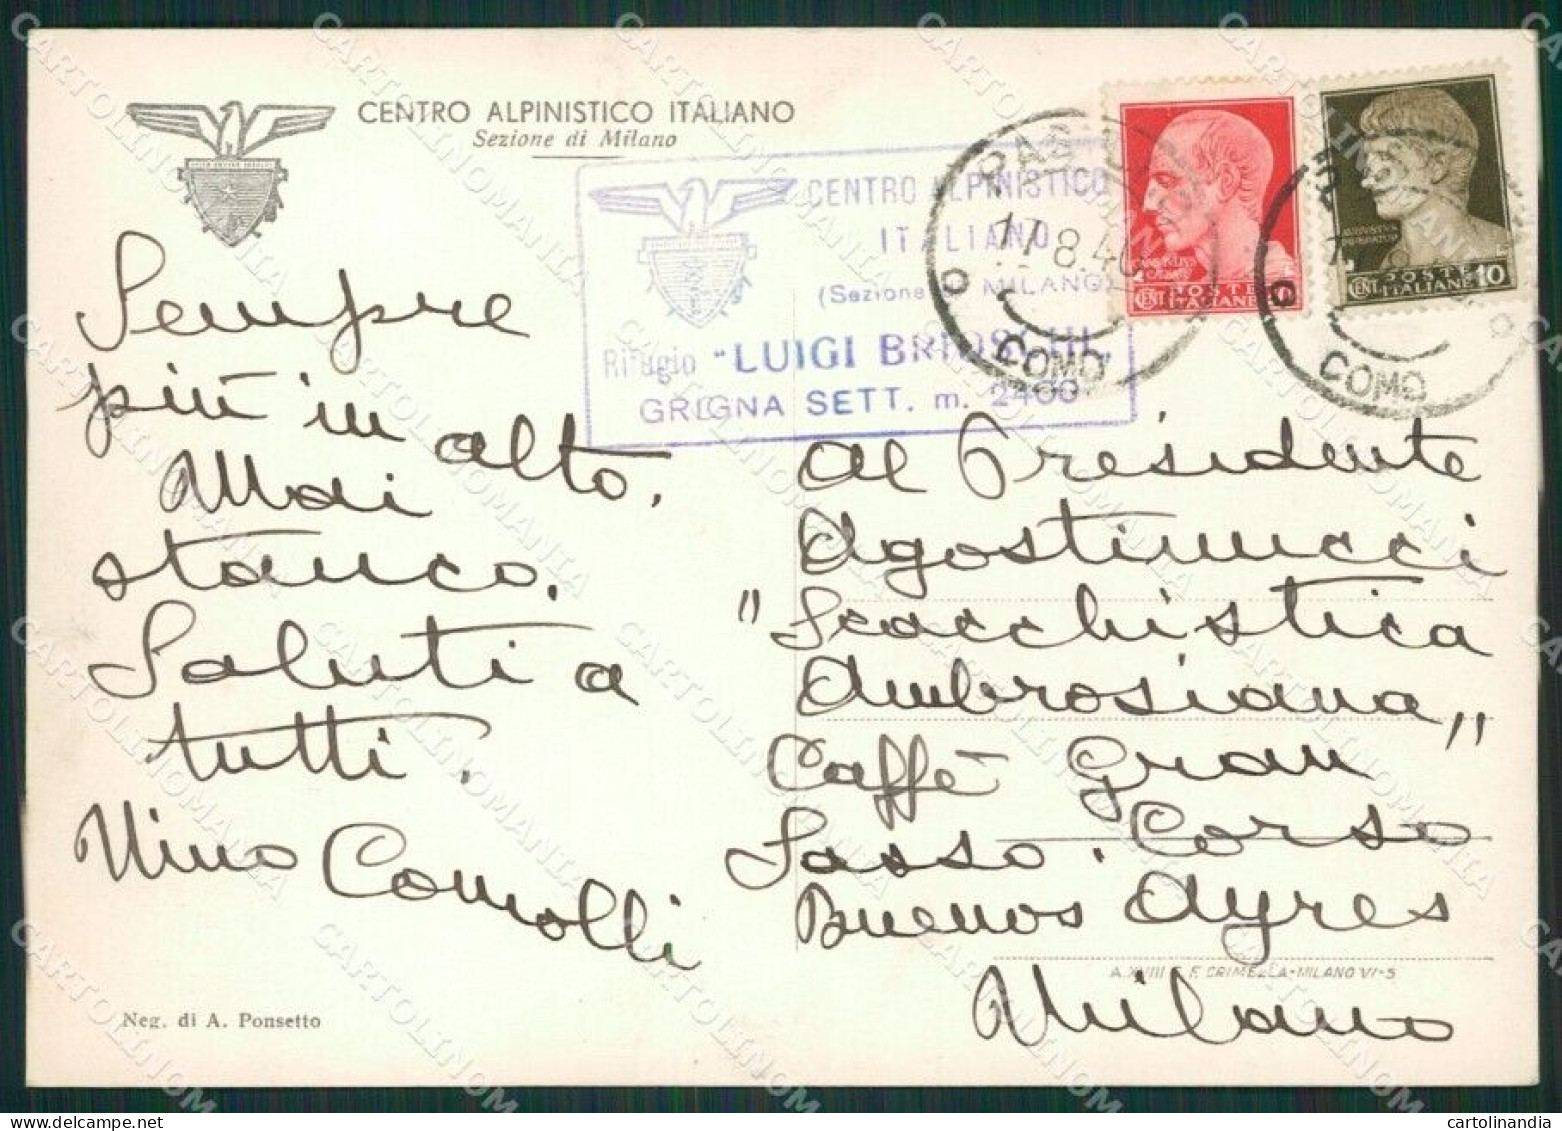 CENTRO ALPINISTICO ITALIANO
Sezione di Milano
CENTRO ALPINISTICO
ITALIANO
(Sezione MILANO)
Rifugio "LUIGI BRIOSCHI"
GRIGNA SETT. m. 2400
17.8.40
COMO
CENT POSTE ITALIANE
COMO
CENT POSTE ITALIANE 10
Sempre
più in alto.
Mai
stanco.
Saluti a
tutti.
Nino Comolli
Al Presidente
Agostinucci
"Scacchistica
Ambrosiana"
Caffè Gran
Sasso. Corso
Buenos Ayres
Milano
A. XVIII E. F. CRIMELLA - MILANO VI-5
Neg. di A. Ponsetto
CARTOLINOMANIA
cartolinandia